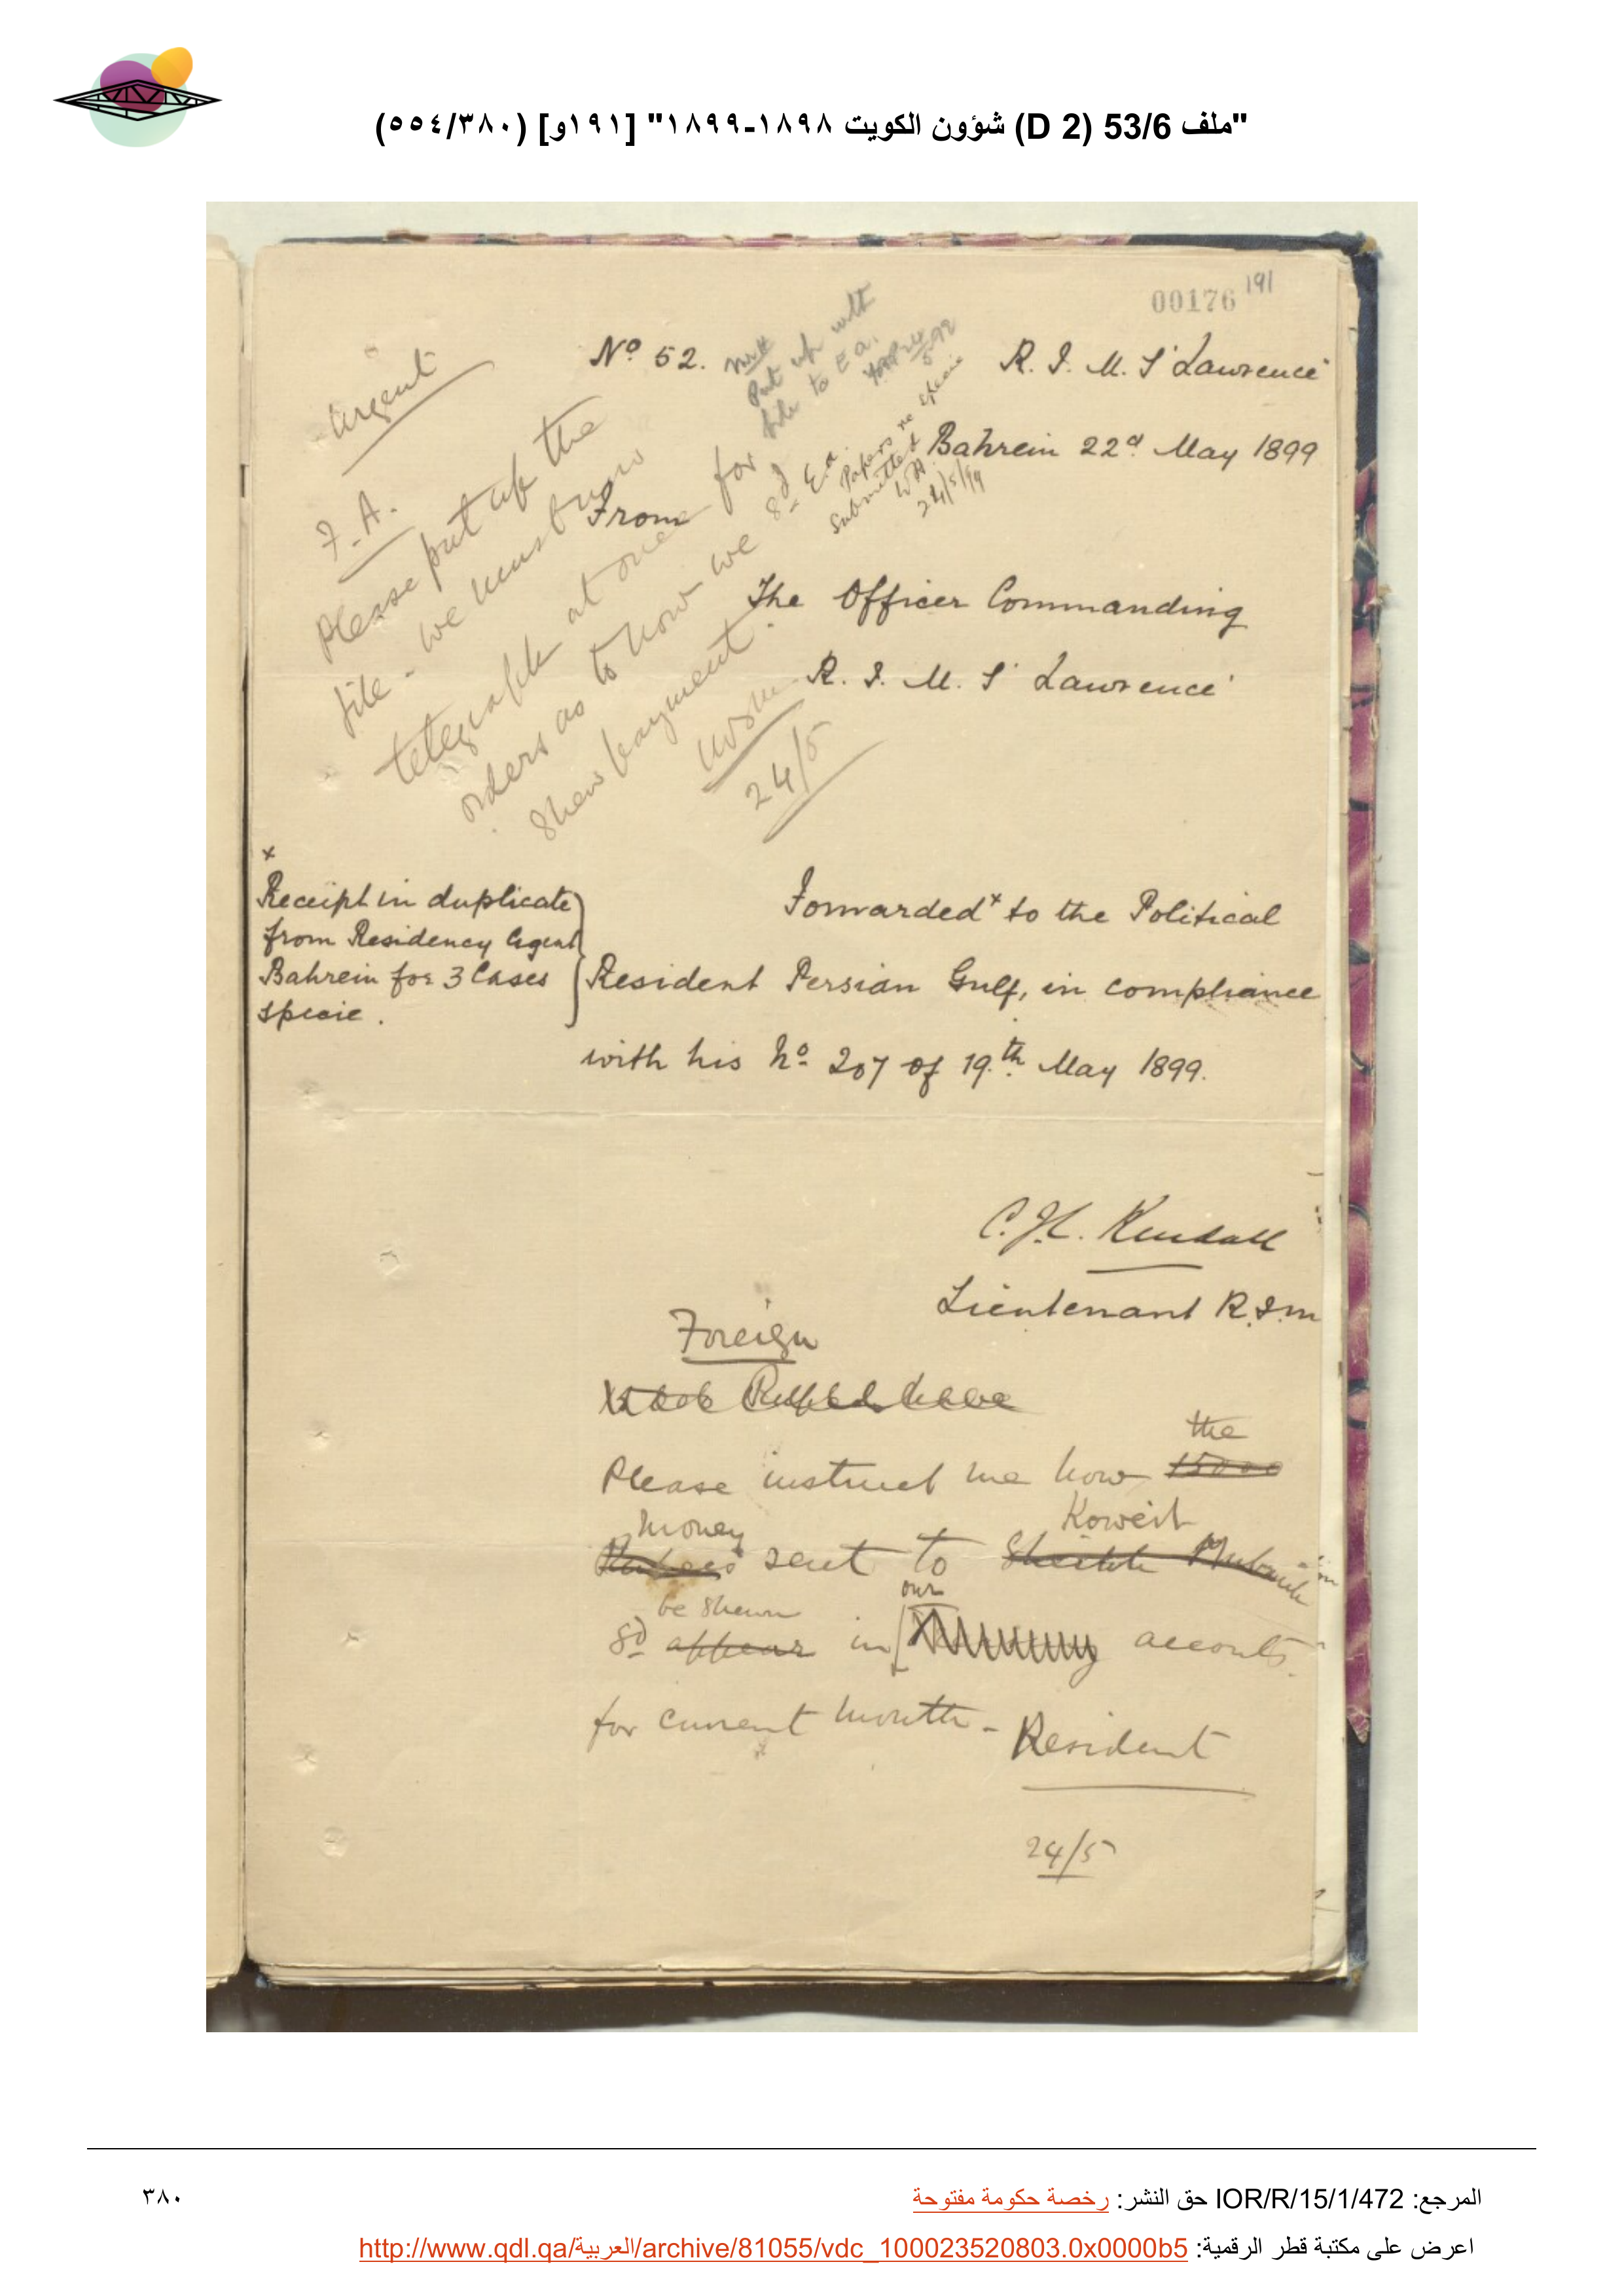 "ملف 53/6 (D 2) شؤون الكويت ١٨٩٨-١٨٩٩" [١٩١و] (٥٥٤/٣٨٠)
00176 191
Nº 52.
R. I. M. S 'Lawrence'
Bahrein 22d May 1899
Urgent
F. A.
Please put up the
file - we must know
telegraph at once for
orders as to how we sd
shew payment.
24/5
Put up with
file to E a.
Ea.
Papers re specie
submitted
24/5/99
From
The Officer Commanding
R. I. M. S 'Lawrence'
x
Receipt in duplicate
from Residency Agent
Bahrein for 3 Cases
specie.
Forwarded x to the Political
Resident Persian Gulf, in compliance
with his Nº 207 of 19th May 1899.
C. H. Kendall
Lieutenant R.I.M
Foreign
Please instruct me how the
15000
money
Rupees sent to Koweit
Sheikh Mubarik
sd be shewn
appear in our accounts.
for current month - Resident
24/5
المرجع: IOR/R/15/1/472 حق النشر: رخصة حكومة مفتوحة
٣٨٠
اعرض على مكتبة قطر الرقمية: http://www.qdl.qa/العربية/archive/81055/vdc_100023520803.0x0000b5